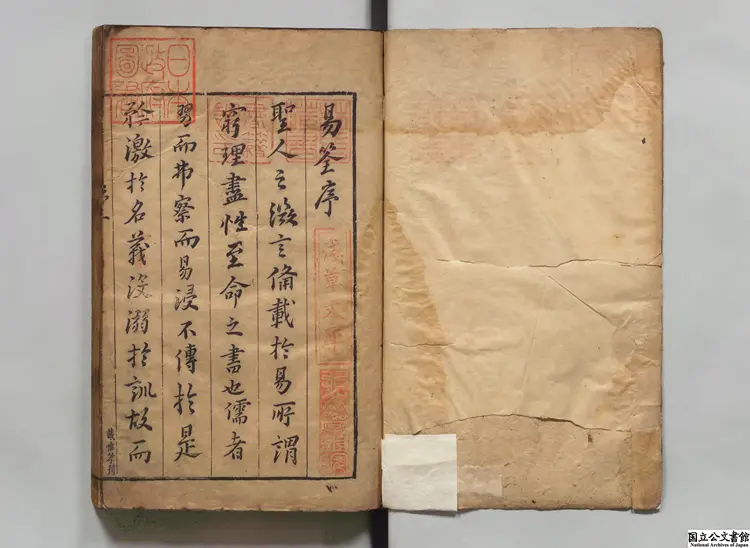 易筌序
聖人之微言備載於易所謂
窮理盡性至命之書也儒者
習而弗察而易浸不傳於是
矜激於名義沒溺於訓故而
日本政府圖書
淺草文庫
国立公文書館
National Archives of Japan